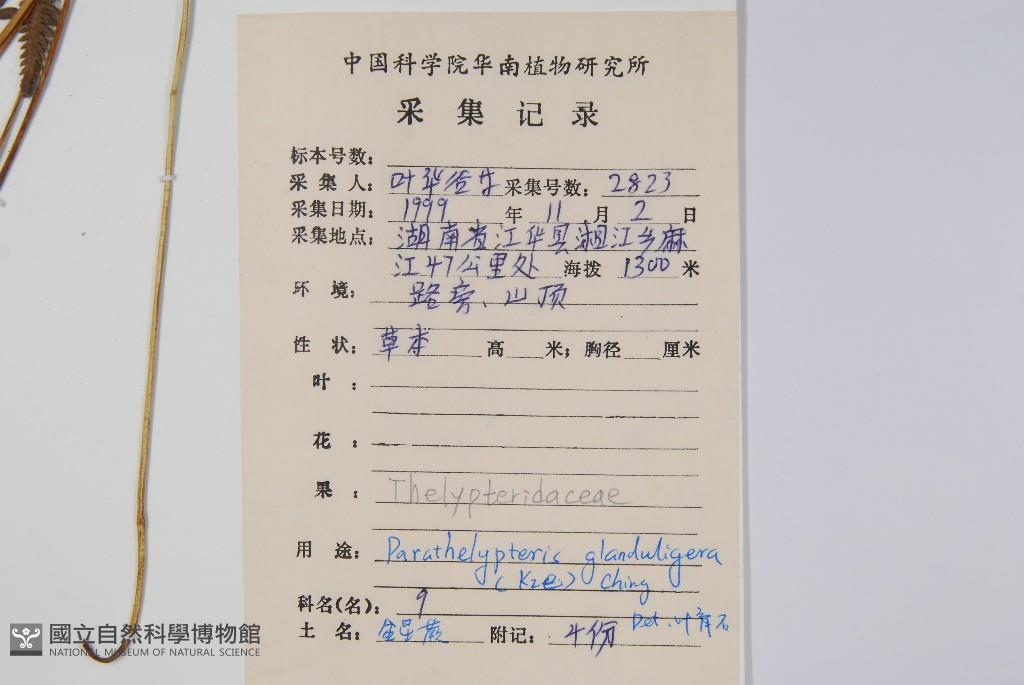 中国科学院华南植物研究所
采集记录
标本号数:
采集人: 叶华谷 采集号数: 2823
采集日期: 1999 年 11 月 2 日
采集地点: 湖南省江华县湘江乡麻
江47公里处 海拨 1300 米
环境: 路旁、山顶
性状: 草本 高 米; 胸径 厘米
叶:
花:
果: Thelypteridaceae
用途: Parathelypteris glanduligera
(Kze) Ching
科名(名): 9
Det. 叶
土名: 金星蕨 附记: 份
國立自然科學博物館
NATIONAL MUSEUM OF NATURAL SCIENCE